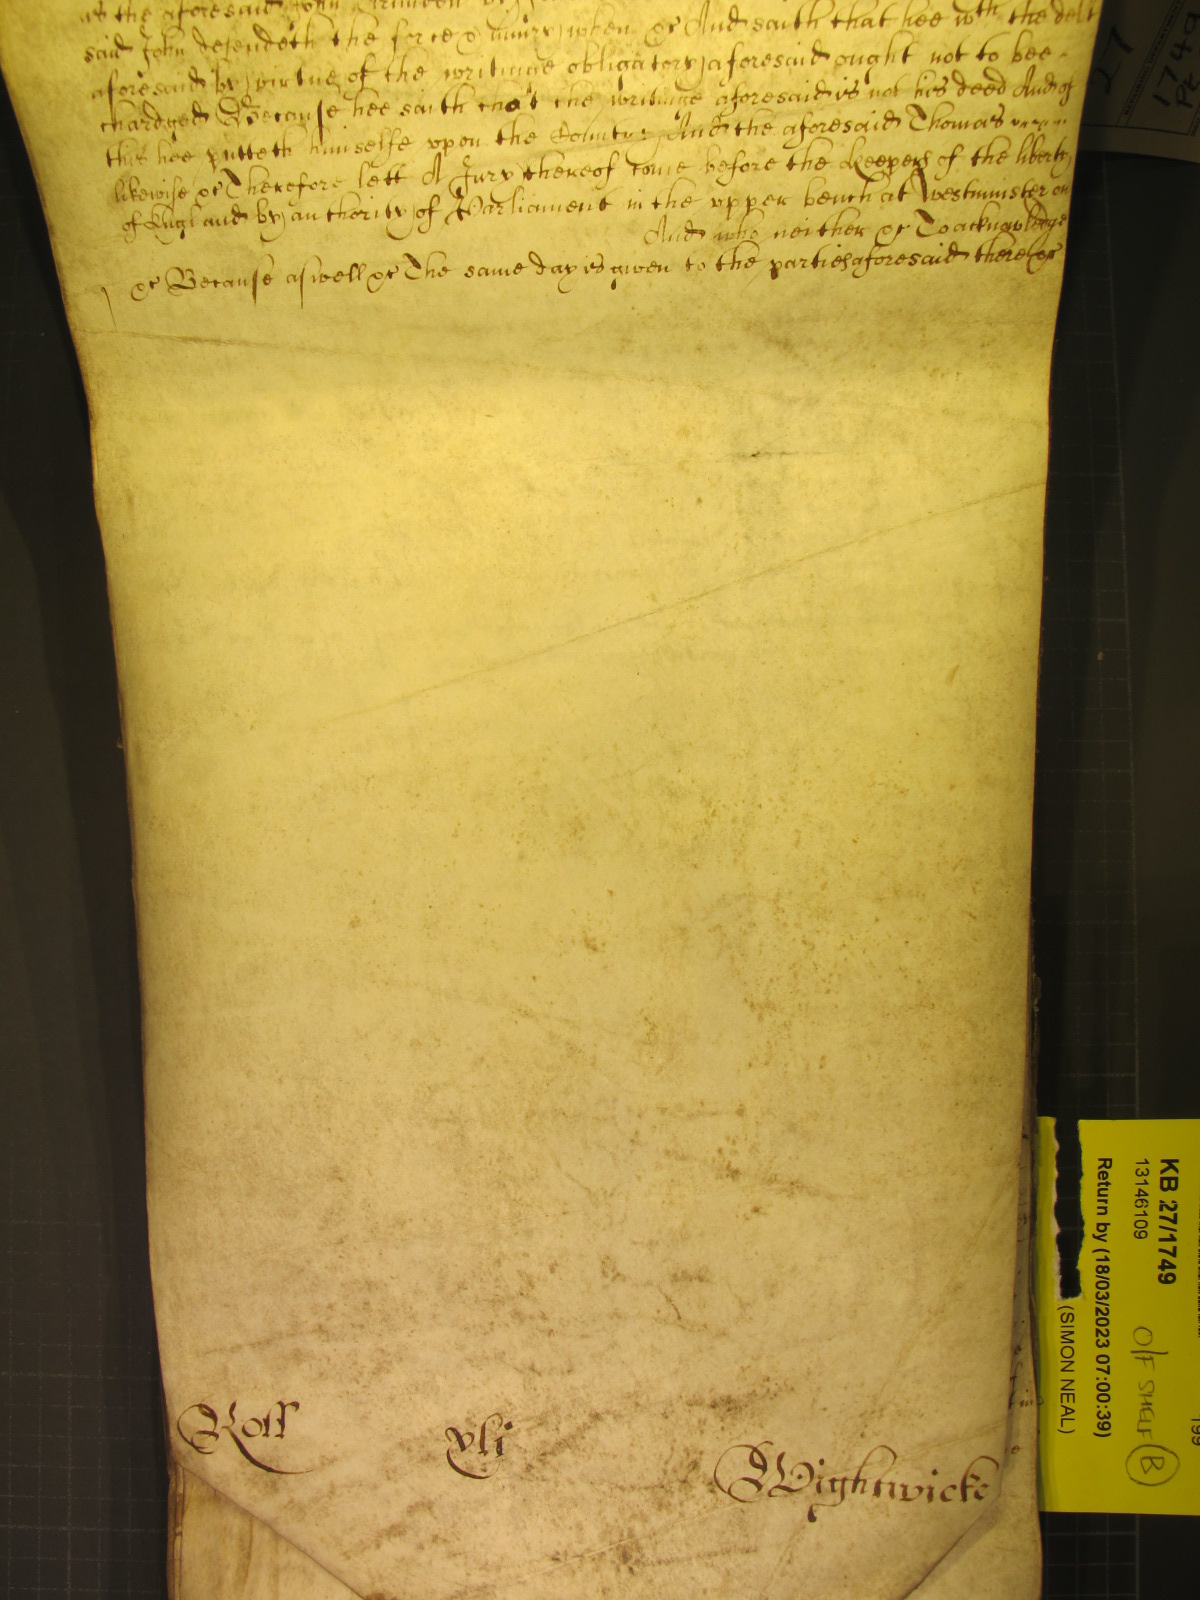 at the aforesaid John
said John defendeth the force & iniury when &c And saith that hee wth the debt
aforesaid by virtue of the writinge obligatory aforesaid ought not to bee
chardged Because hee saith that the writinge aforesaid is not his deed And of
this hee putteth himselfe vpon the Country And the aforesaid Thomas
likewise &c Therefore lett A Jury thereof come before the Keepers of the liberty
of England by authority of Parliament in the vpper bench at Westminster on
And who neither &c To acknowledge
&c Because aswell &c The same day is given to the parties aforesaid there &c
Roll xli Wightwicke
KB 27/1749
13146109
Return by (18/03/2023 07:00:39)
(SIMON NEAL)
O/F SHELF B
27
1749
199